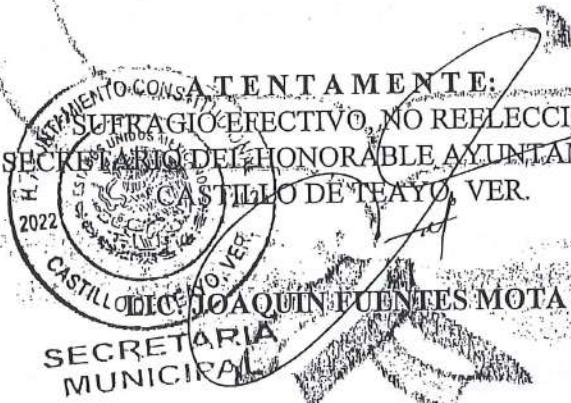 ATENTAMENTE:
SUFRAGIO EFECTIVO, NO REELECCI
SECRETARIO DEL HONORABLE AYUNTAM
CASTILLO DE TEAYO, VER.
LIC. JOAQUIN FUENTES MOTA
H. AYUNTAMIENTO CONSTITUCIONAL
ESTADOS UNIDOS
2022
CASTILLO DE TEAYO, VER.
SECRETARIA
MUNICIPAL